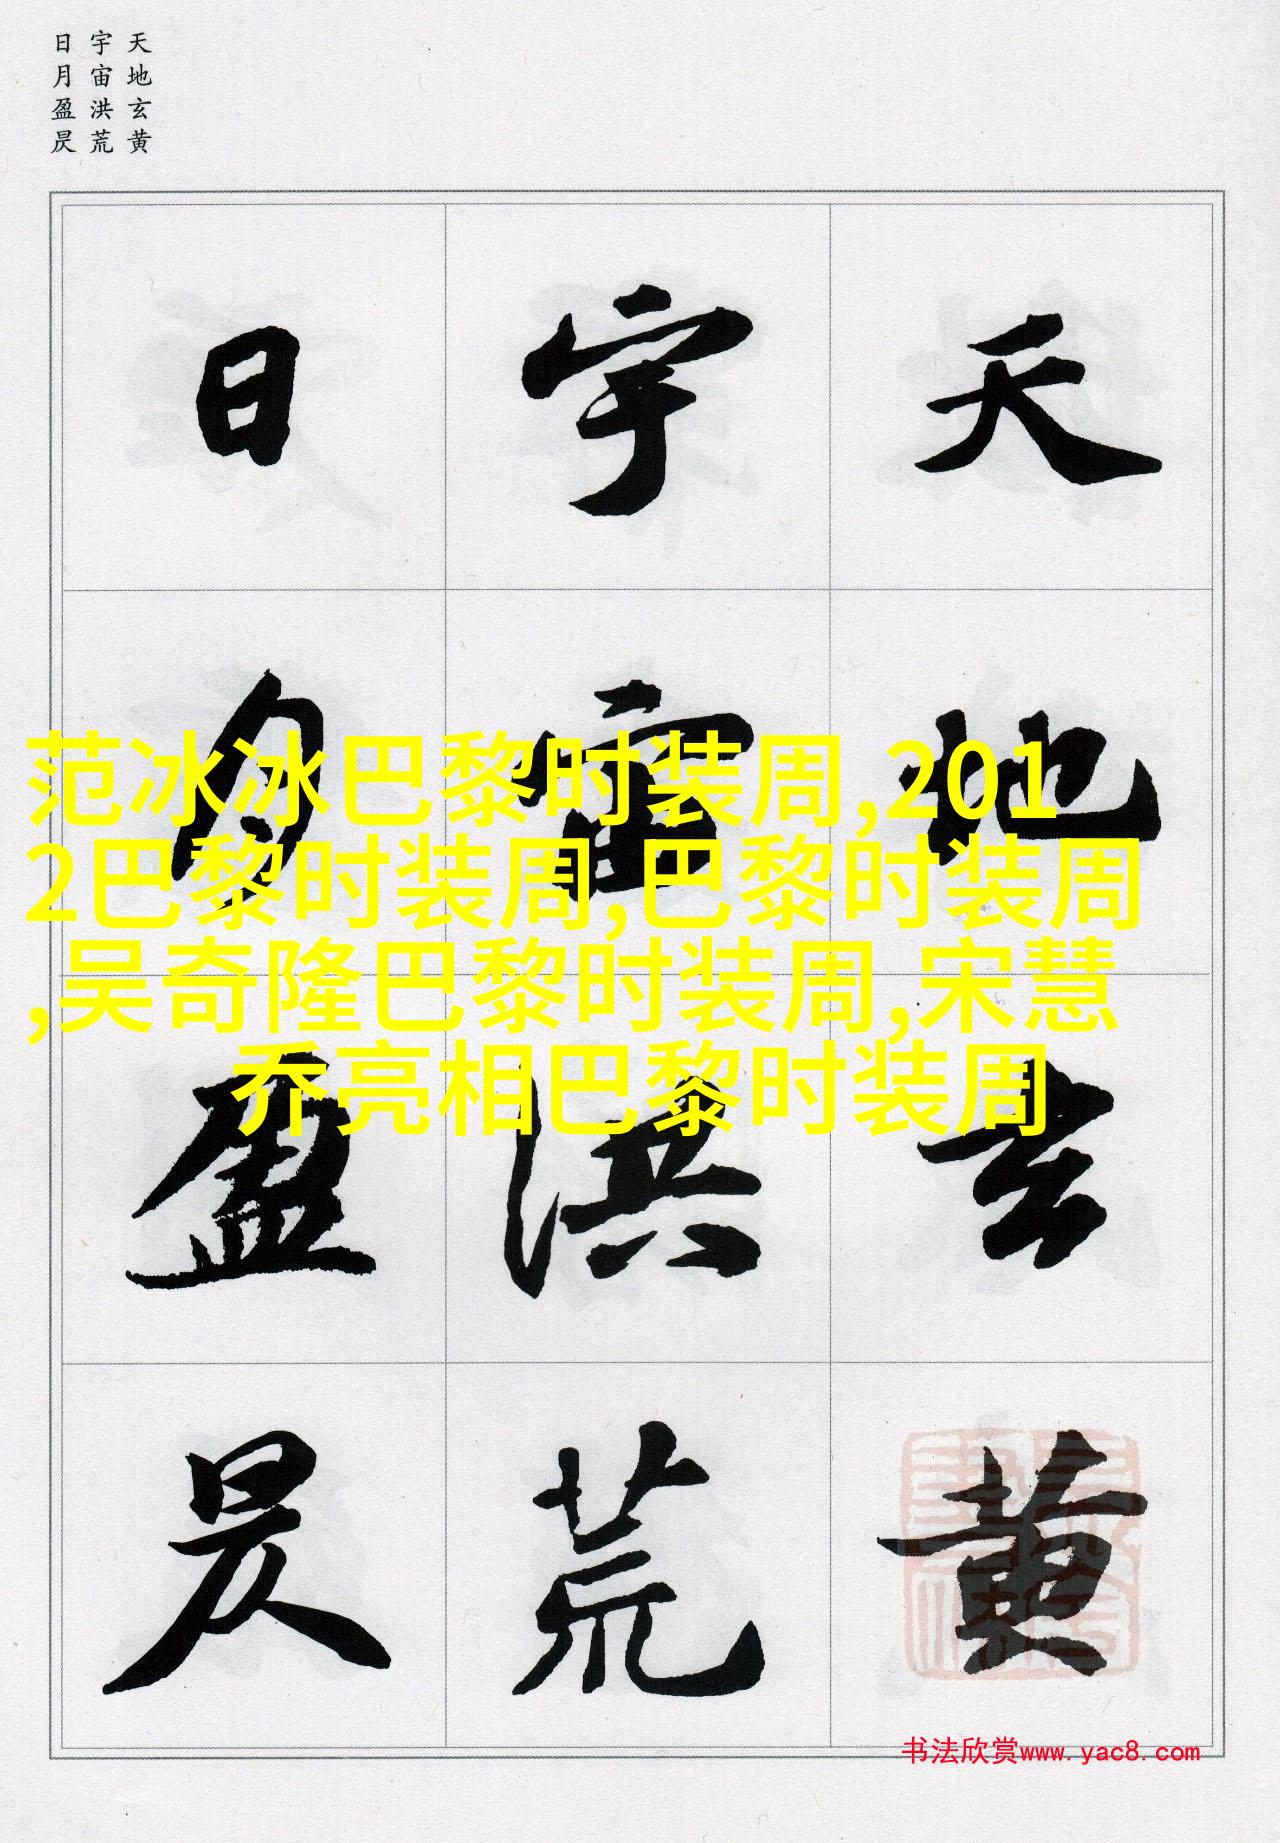 天地玄黄
宇宙洪荒
日月盈昃
天地玄黄
宇宙洪荒
日月盈昃
范冰冰巴黎时装周,201
2巴黎时装周,巴黎时装周
,吴奇隆巴黎时装周,宋慧
乔亮相巴黎时装周
书法欣赏www.yac8.com